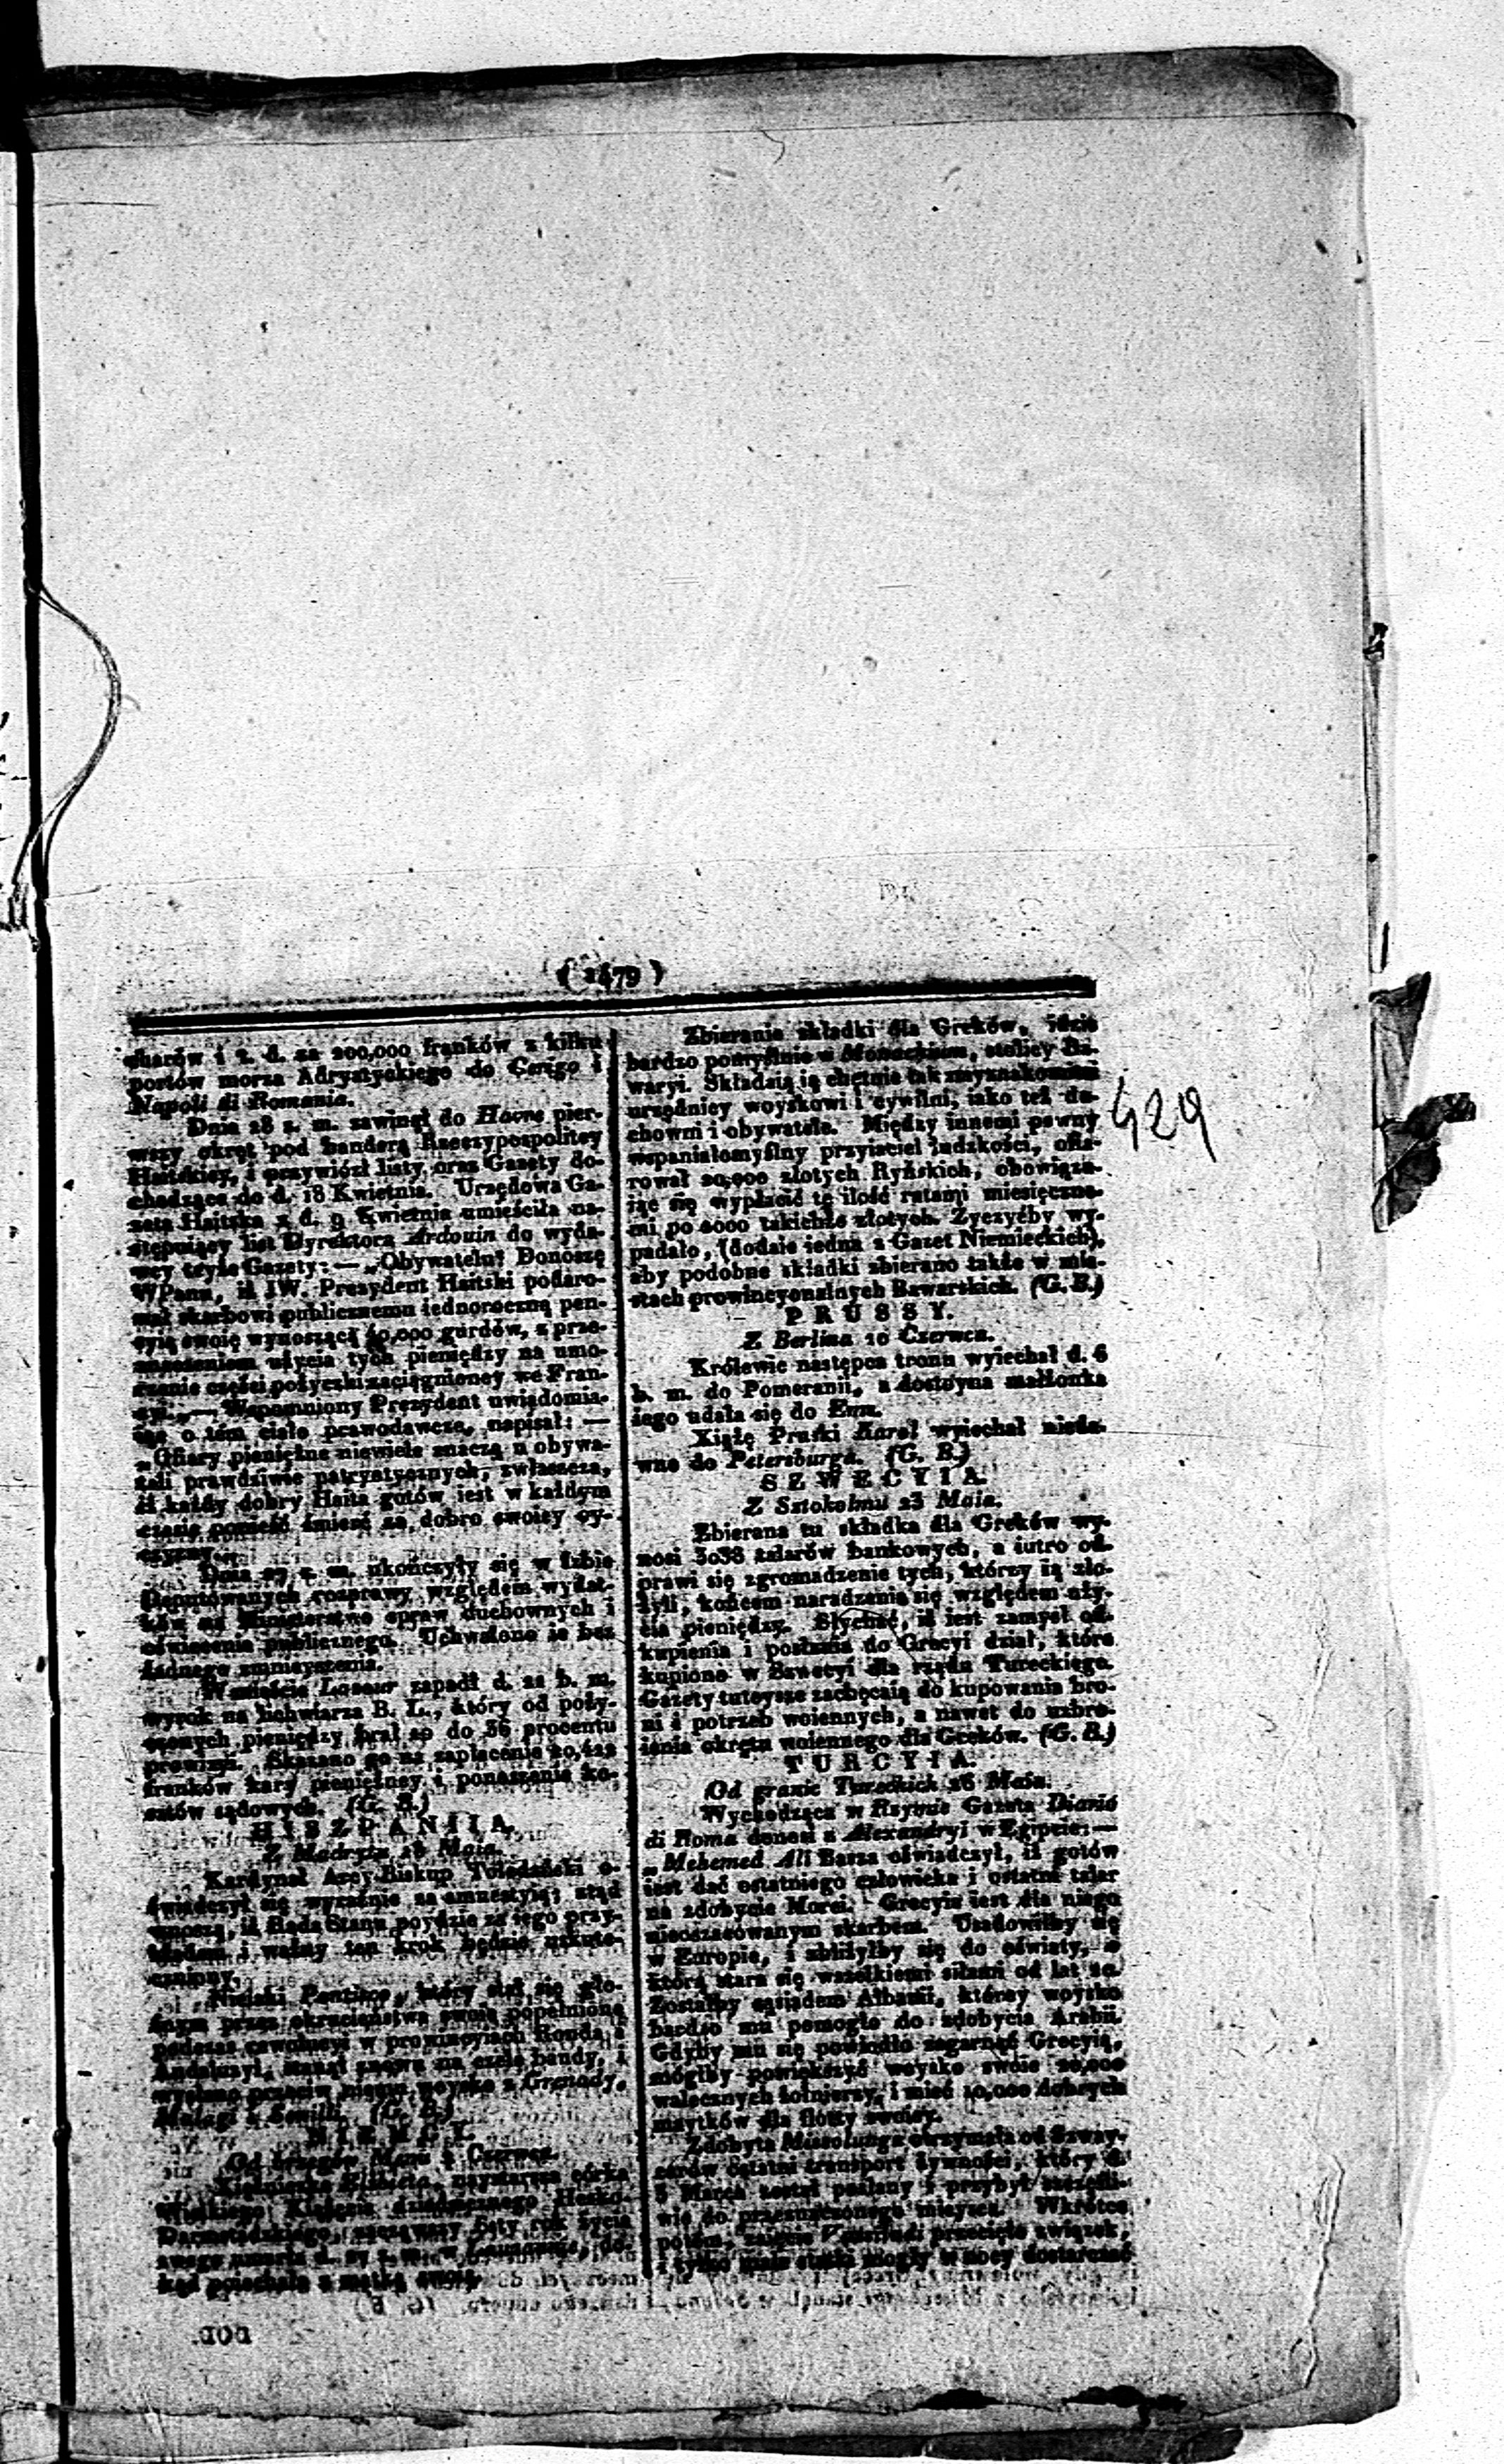 ( 1479 )
charów i t. d. za 200,000 franków z kilku
portów morza Adryatyckiego do Cerigo i
Napoli di Romania.
Dnia 28 z. m. zawinął do Havre pier-
wszy okręt pod banderą Rzeczypospolitey
Haitskiey, i przywiózł listy oraz Gazety do-
chodzące do d. 18 Kwietnia. Urzędowa Ga-
zeta Haitska z d. 9 Kwietnia umieściła na-
stępuiący list Dyrektora Ardouin do wyda-
wcy teyże Gazety: — „Obywatelu! Donoszę
WPanu, iż JW. Prezydent Haitski podaro-
wał skarbowi publicznemu iednoroczną pen-
syią swoię wynoszącą 40,000 gurdów, z prze-
znaczeniem użycia tych pieniędzy na umo-
rzenie części pożyczki zaciągnioney we Fran-
cyi.„ — Wspomniony Prezydent uwiadomia-
iąc o tém ciało prawodawcze, napisał: —
„Ofiary pieniężne niewiele znaczą u obywa-
teli prawdziwie patryotycznych, zwłaszcza,
iż każdy dobry Haita gotów iest w każdym
czasie ponieść śmierć za dobro swoiey oy-
czyzny.„
Dnia 27 z. m. ukończyły się w Izbie
Deputowanych rozprawy względem wydat-
ków na Ministerstwo spraw duchownych i
oświecenia publicznego. Uchwalono ie bez
żadnego zmnieyszenia.
W mieście Laseur zapadł d. 22 b. m.
wyrok na lichwiarza B. L., który od poży-
czonych pieniędzy brał 20 do 36 procentu
prowizyi. Skazano go na zapłacenie 20,422
franków kary pieniężney i ponoszenie ko-
sztów sądowych. (G. B.)
HISZPANIIA.
Z Madrytu 28 Maia.
Kardynał Arcy-Biskup Toledański o-
świadczył się wyraźnie za amnestyią; ztąd
wnoszą, iż Rada Stanu poydzie za iego przy-
kładem i ważny ten krok będzie uskute-
czniony.
Niejaki Pantisco, który stał się gło-
śnym przez okrucieństwa swoie popełnione
podczas rewolucyi w prowincyiach Ronda i
Andaluzyi, stanął znowu na czele bandy, i
wysłano przeciw niemu woysko z Grenady,
Malagi i Sewilli. (G. B.)
NIEMCY.
Od brzegów Menu 5 Czerwca.
Xiężniczka Elżbieta, naystarsza córka
Wielkiego Xiążęcia dziedzicznego Hesko-
Darmstadzkiego, zacząwszy 6ty rok życia
swego umarła d. 27 z. m. w Lausannie, do-
kąd poiechała z matką swoią.
Zbieranie składki dla Greków, idzie
bardzo pomyślnie w Monachium, stolicy Ba-
waryi. Składaią ią chętnie tak znyznakomitsi
urzędnicy woyskowi i cywilni, iako też du-
chowni i obywatele. Między innemi pewny
wspaniałomyślny przyiaciel ludzkości, ofia-
rował 20,000 złotych Ryńskich, obowiązu-
iąc się wypłacić tę ilość ratami miesięczne-
mi po 2000 takichże złotych. Życzyćby wy-
padało, (dodaie iedna z Gazet Niemieckich),
aby podobne składki zbierano także w mie-
stach prowincyonalnych Bawarskich. (G. B.)
PRUSSY.
Z Berlina 10 Czerwca.
Królewic następca tronu wyiechał d. 6
b. m. do Pomeranii, a dostoyna małżonka
iego udała się do Ems.
Xiążę Pruski Karol wyiechał nieda-
wno do Petersburga. (G. B.)
SZWECYIA.
Z Sztokolmu 23 Maia.
Zbierana tu składka dla Greków wy-
nosi 3038 talarów bankowych, a iutro od-
prawi się zgromadzenie tych, którzy ią zło-
żyli, końcem naradzania się względem uży-
cia pieniędzy. Słychać, iż iest zamysł od-
kupienia i posłania do Grecyi dział, które
kupiono w Szwecyi dla rządu Tureckiego.
Gazety tuteysze zachęcaią do kupowania bro-
ni i potrzeb woiennych, a nawet do uzbro-
ienia okrętu woiennego dla Greków. (G. B.)
TURCYIA.
Od granic Tureckich 26 Maia.
Wychodząca w Rzymie Gazeta Diario
di Roma donosi z Alexandryi w Egipcie: —
„Mehemed Ali Basza oświadczył, iż gotów
iest dać ostatniego człowieka i ostatni talar
na zdobycie Morei. Grecyia iest dla niego
nieoszacowanym skarbem. Usadowiłby się
w Europie, i zbliżyłby się do oświaty, o
którą stara się wszelkiemi siłami od lat 20.
Zostałby sąsiadem Albanii, którey woysko
bardzo mu pomogło do zdobycia Arabii.
Gdyby mu się powiodło zagarnąć Grecyią,
mógłby powiększyć woysko swoie 20,000
walecznych żołnierzy, i mieć 10,000 dobrych
maytków dla flotty swoiey.
Zdobyta Missolunga otrzymała od Szway-
carów ostatni transport żywności, który d.
5 Marca został posłany i przybył szczęśli-
wie do przeznaczonego mieysca. Wkrótce
potém, zaięcie Vassiladi przecięło związek,
i tylko małe statki mogły w nocy dostarczać
429
DOD.